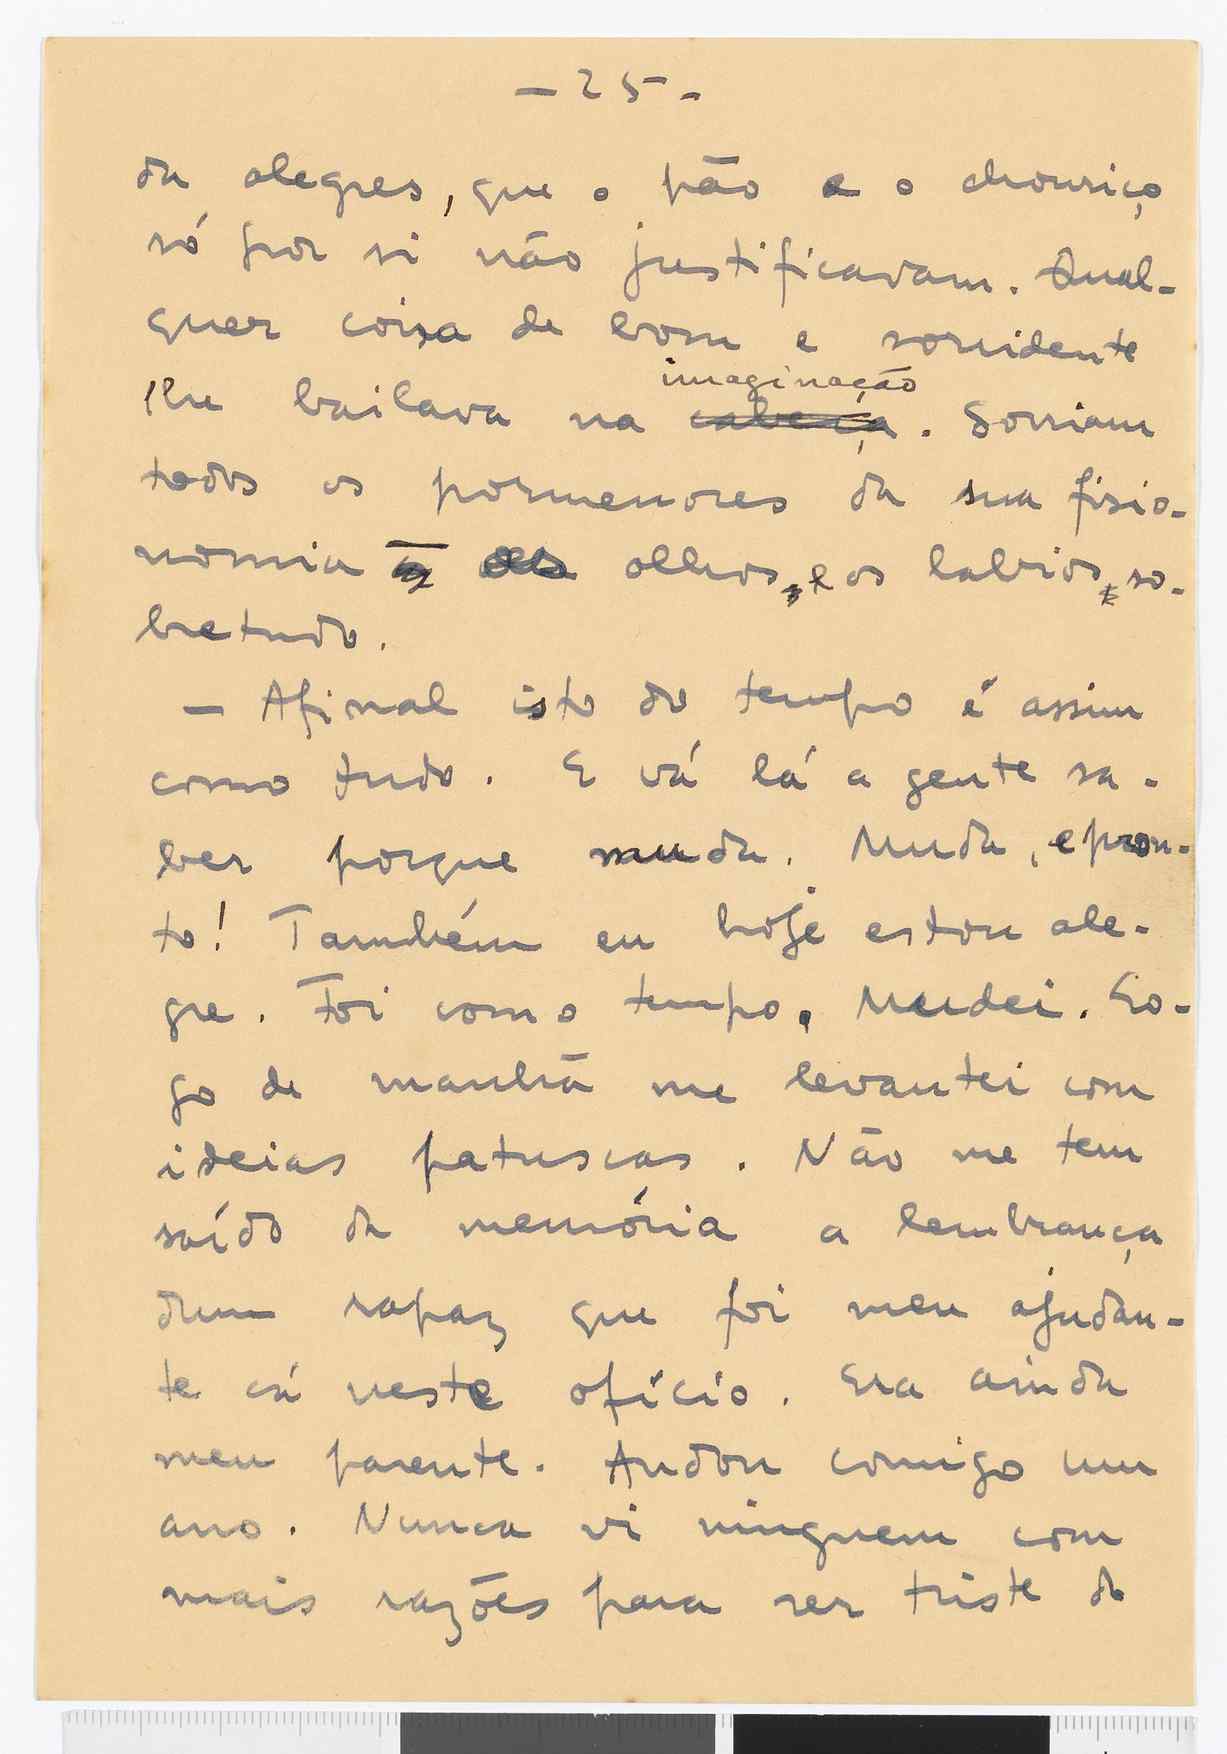 - 25 -
da alegres, que o pão e o chouriço
só por si não justificavam. Qual-
quer coisa de bom e sorridente
imaginação
lhe bailava na cabeça. Sorriam
todos os pormenores da sua fisio-
nomia – os olhos, e os labios, so-
bretudo.
— Afinal isto do tempo é assim
como tudo. E vá lá a gente sa-
ber porque muda. Muda, e pron-
to! Também eu hoje estou ale-
gre. Foi como o tempo. Mudei. Lo-
go de manhã me levantei com
ideias patuscas. Não me tem
saído da memória a lembrança
dum rapaz que foi meu ajudan-
te cá neste ofício. Era ainda
meu parente. Andou comigo um
ano. Nunca vi ninguem com
mais razões para ser triste do